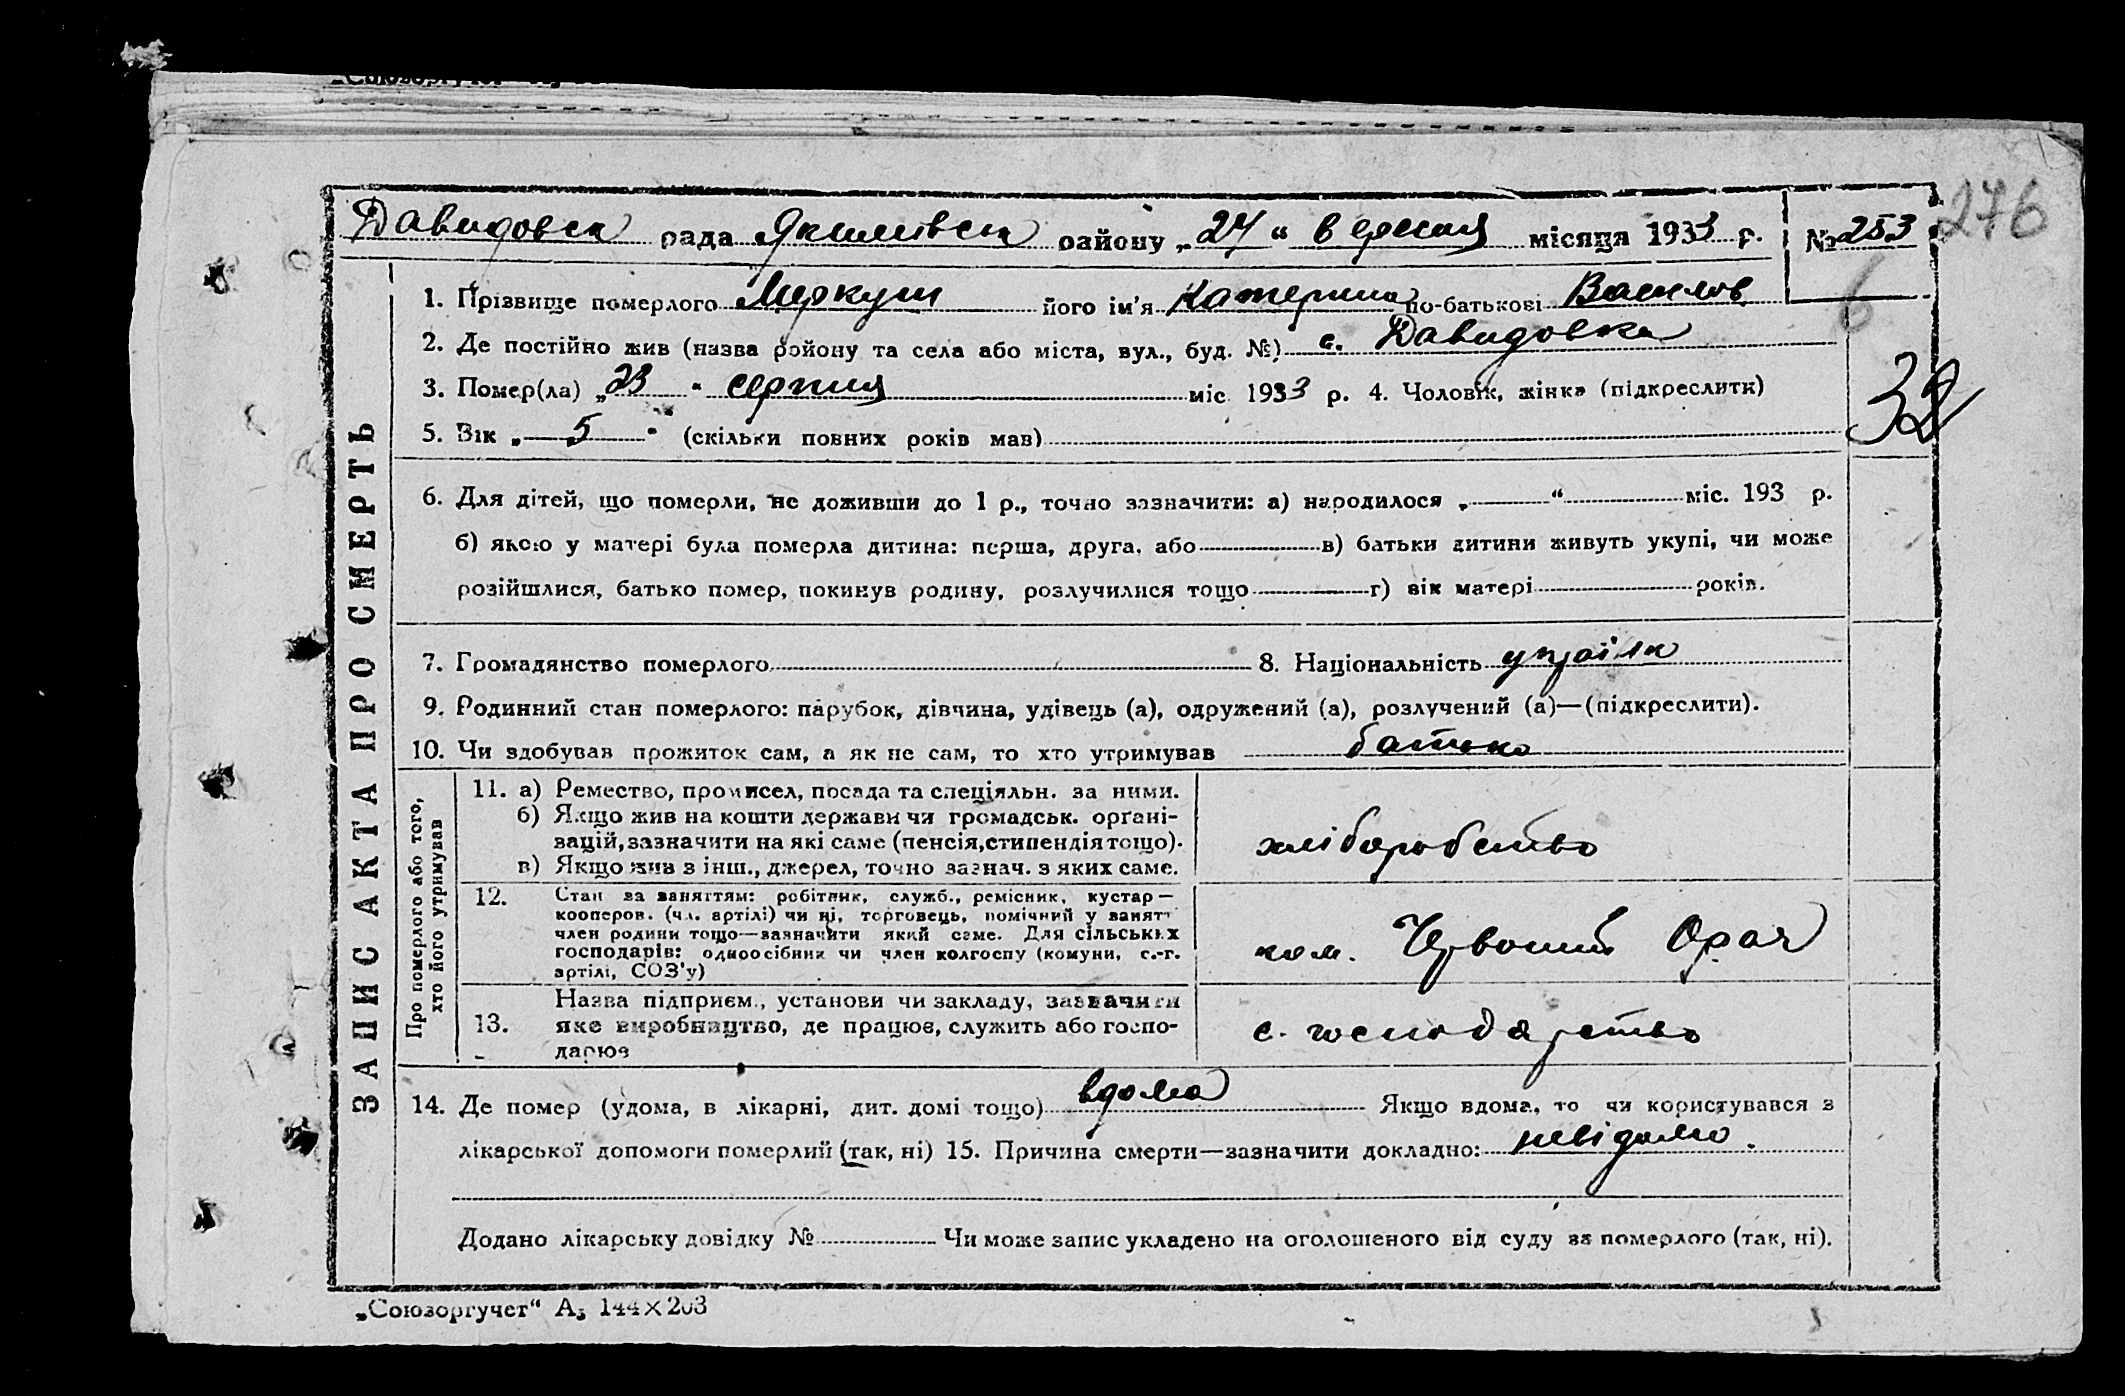 Давидовск рада Якимівск району „24“ вересня місяця 1933 р. № 253
276
6
1. Прізвище померлого Меркуш його ім'я Катерина по-батькові Василов
2. Де постійно жив (назва району та села або міста, вул., буд. №) с. Давидовка
3. Помер(ла) „23“ серпня міс 1933 р. 4. Чоловік, жінка (підкреслити)
32
5. Вік „—5—“ (скільки повних років мав)
6. Для дітей, що померли, не доживши до 1 р., точно зазначити: а) народилося „ “ міс. 193 р.
б) якою у матері була померла дитина: перша, друга, або в) батьки дитини живуть укупі, чи може
розійшлися, батько помер, покинув родину, розлучилися тощо г) вік матері років.
7. Громадянство померлого 8. Національність україн
9. Родинний стан померлого: парубок, дівчина, удівець (а), одружений (а), розлучений (а)—(підкреслити).
10. Чи здобував прожиток сам, а як не сам, то хто утримував батько
ЗАПИС АКТА ПРО СМЕРТЬ
Про померлого або того,
хто його утримував
11. а) Ремество, промисел, посада та спеціяльн. за ними.
б) Якщо жив на кошти держави чи громадськ. орґані-
зацій, зазначити на які саме (пенсія, стипендія тощо).
в) Якщо жив з інш., джерел, точно зазнач. з яких саме.
хліборобство
12. Стан за заняттям: робітник, служб., ремісник, кустар—
кооперов. (чл. артілі) чи ні, торговець, помічний у занятт
член родини тощо—зазначити який саме. Для сільських
господарів: одноосібник чи член колгоспу (комуни, с.-г.
артілі, СОЗ'у)
ком. Червоний Орач
13. Назва підприєм., установи чи закладу, зазначити
яке виробництво, де працює, служить або госпо-
дарює
с. господарство
14. Де помер (удома, в лікарні, дит. домі тощо) вдома Якщо вдома, то чи користувався з
лікарської допомоги померлий (так, ні) 15. Причина смерти—зазначити докладно: невідомо.
Додано лікарську довідку № Чи може запис укладено на оголошеного від суду за померлого (так, ні).
„Союзоргучет“ А₅ 144×203